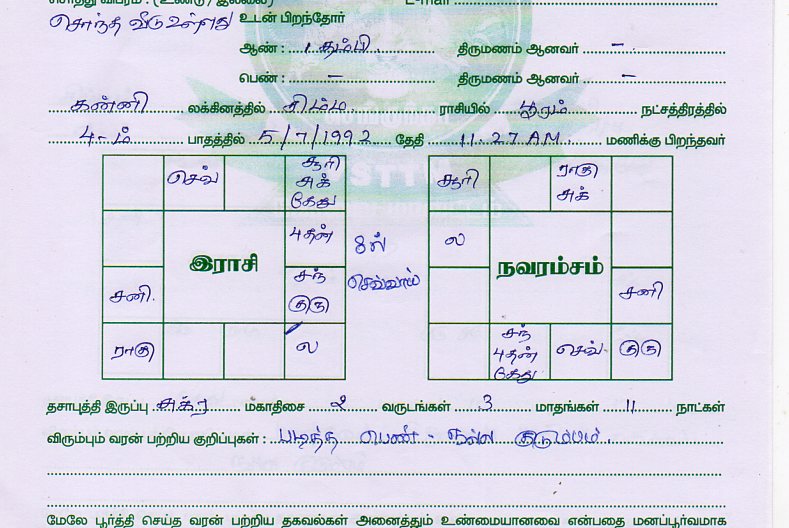 சொத்து விபரம் : (உண்டு / இல்லை) E-mail
சொந்த வீடு உள்ளது உடன் பிறந்தோர்
ஆண் : 1 தம்பி திருமணம் ஆனவர் –
பெண் : – திருமணம் ஆனவர் –
கன்னி லக்கினத்தில் சிம்ம ராசியில் பூரம் நட்சத்திரத்தில்
4-ம் பாதத்தில் 5/7/1992 தேதி 11.27 AM. மணிக்கு பிறந்தவர்
செவ் சூரி சுக் கேது
புதன்
இராசி
சனி சந் குரு
ராகு ல
8ல் செவ்வாய்
சூரி ராகு சுக்
ல
நவரம்சம்
சனி
சந் புதன் கேது செவ் குரு
தசாபுத்தி இருப்பு சுக்ர மகாதிசை 2 வருடங்கள் 3 மாதங்கள் 11 நாட்கள்
விரும்பும் வரன் பற்றிய குறிப்புகள் : படித்த பெண் - நல்ல குடும்பம்.
மேலே பூர்த்தி செய்த வரன் பற்றிய தகவல்கள் அனைத்தும் உண்மையானவை என்பதை மனப்பூர்வமாக